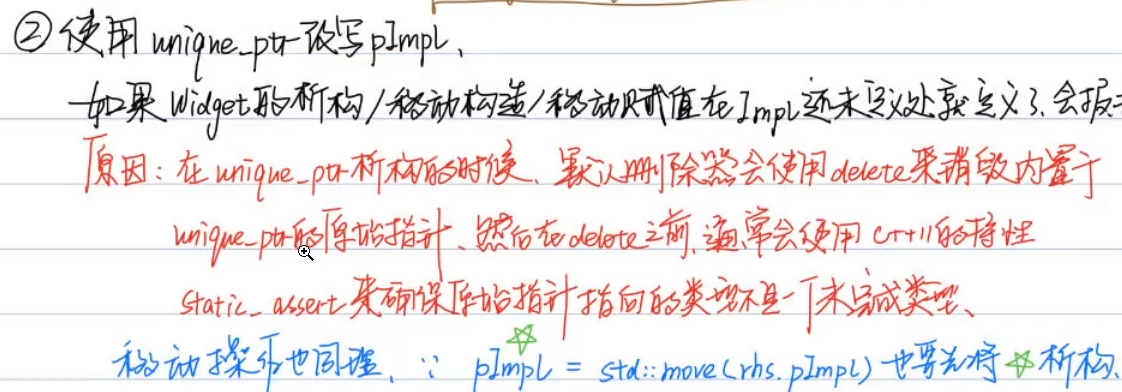 ② 使用 unique_ptr 改写 pImpl、
如果 Widget的析构/移动构造/移动赋值在Impl还未定义处就定义了、会报
原因：在unique_ptr析构的时候、默认删除器会使用delete来销毁内置于
unique_ptr的原始指针、然后在delete之前、通常会使用 C++11的特性
static_assert来确保原始指针指向的类型不是一个未完成类型、
移动操作也同理、∵ pImpl☆ = std::move(rhs.pImpl) 也要先将☆析构、